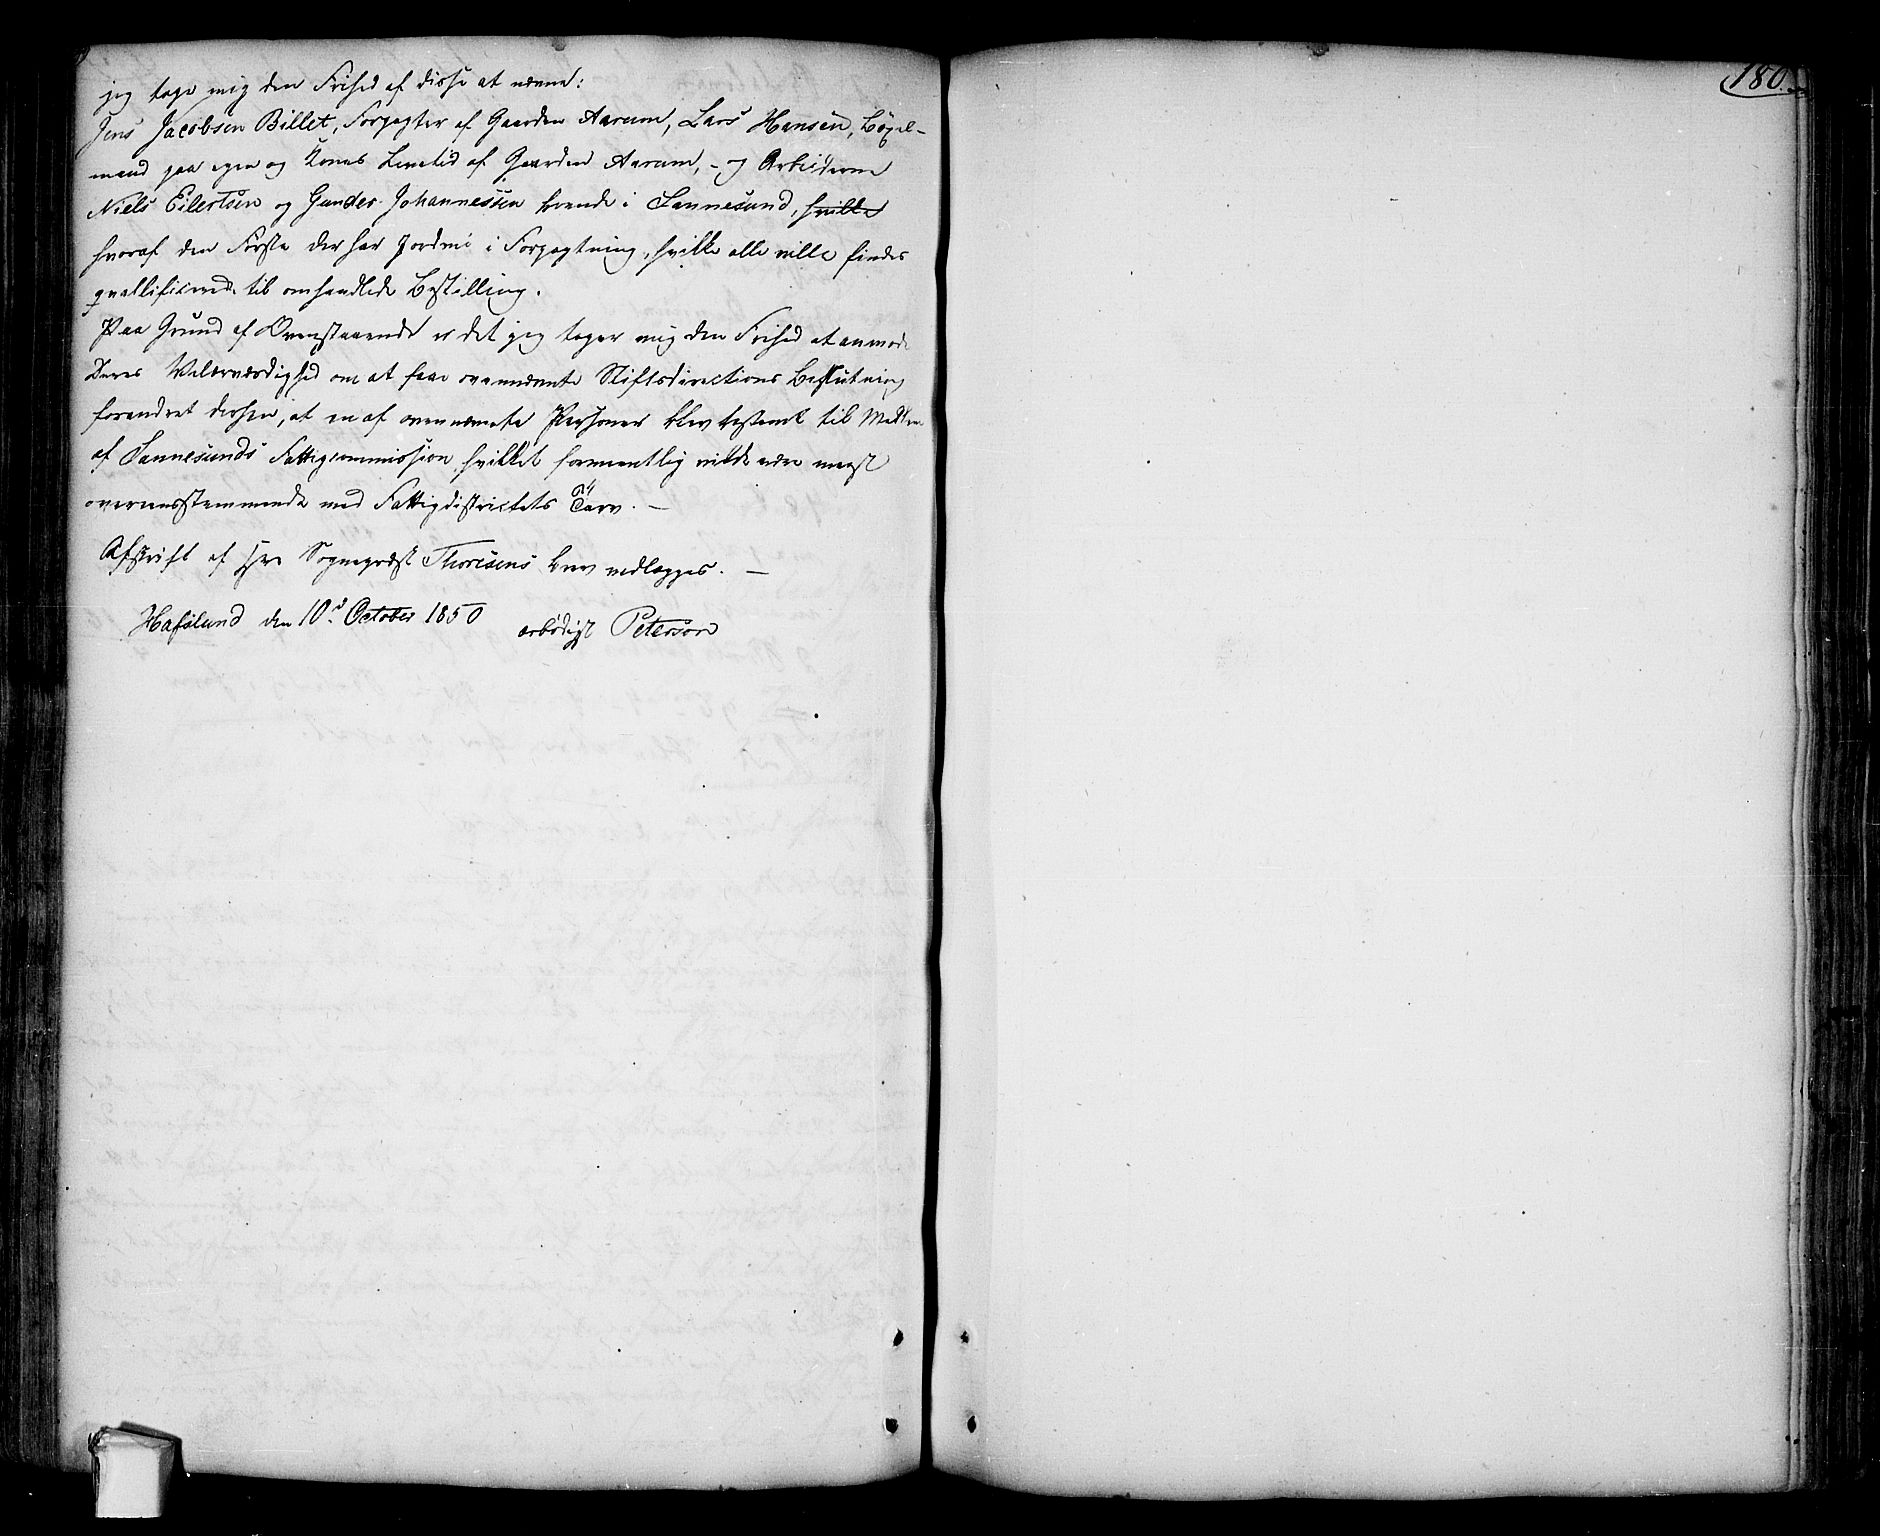 jeg tage mig den Frihed af disse at nævne:
Jens Jacobsen Billet, Forpagter af Gaarden Aarum, Lars Hansen, Løxel-
mand paa egen og Kones Levetid af Gaarden Aarum, - og Arbeiderne
Niels Eilertsen og Gunder Johannessen boende i Sannesund, hvilke
hvoraf den Første der har Jordvei i Forpagtning, hvilke alle ville findes
qvallificerede til omhandlede Bestilling.
Paa Grund af Ovenstaaende er det jeg tager mig den Frihed at anmode
Deres Velærværdighed om at faae ovennævnte Stiftsdirections Beslutning
forandret derhen, at en af ovennævnte Personer blev bestemt til Medlem
af Sannesunds Fattigcommission, hvilket formentlig vilde være meest
overensstemmende med Fattigdistrictets Tarv. —
Afskrift af Hr. Sognepræst Thoresens brev vedlægges. —
Hafslund den 10d. October 1850
ærbødigst Peterson
180.